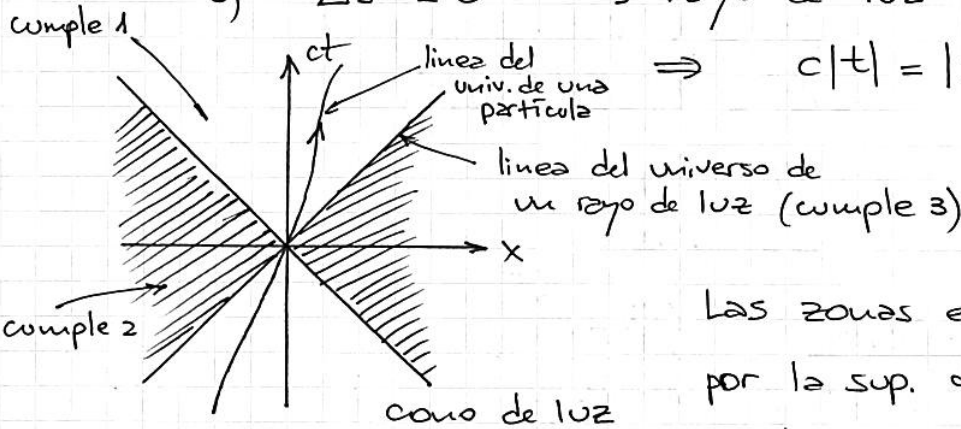 cumple 1
ct
linea del
univ. de una
partícula
⇒ c|t| = |
linea del universo de
un rayo de luz (cumple 3)
x
cumple 2
Las zonas
por la sup.
cono de luz